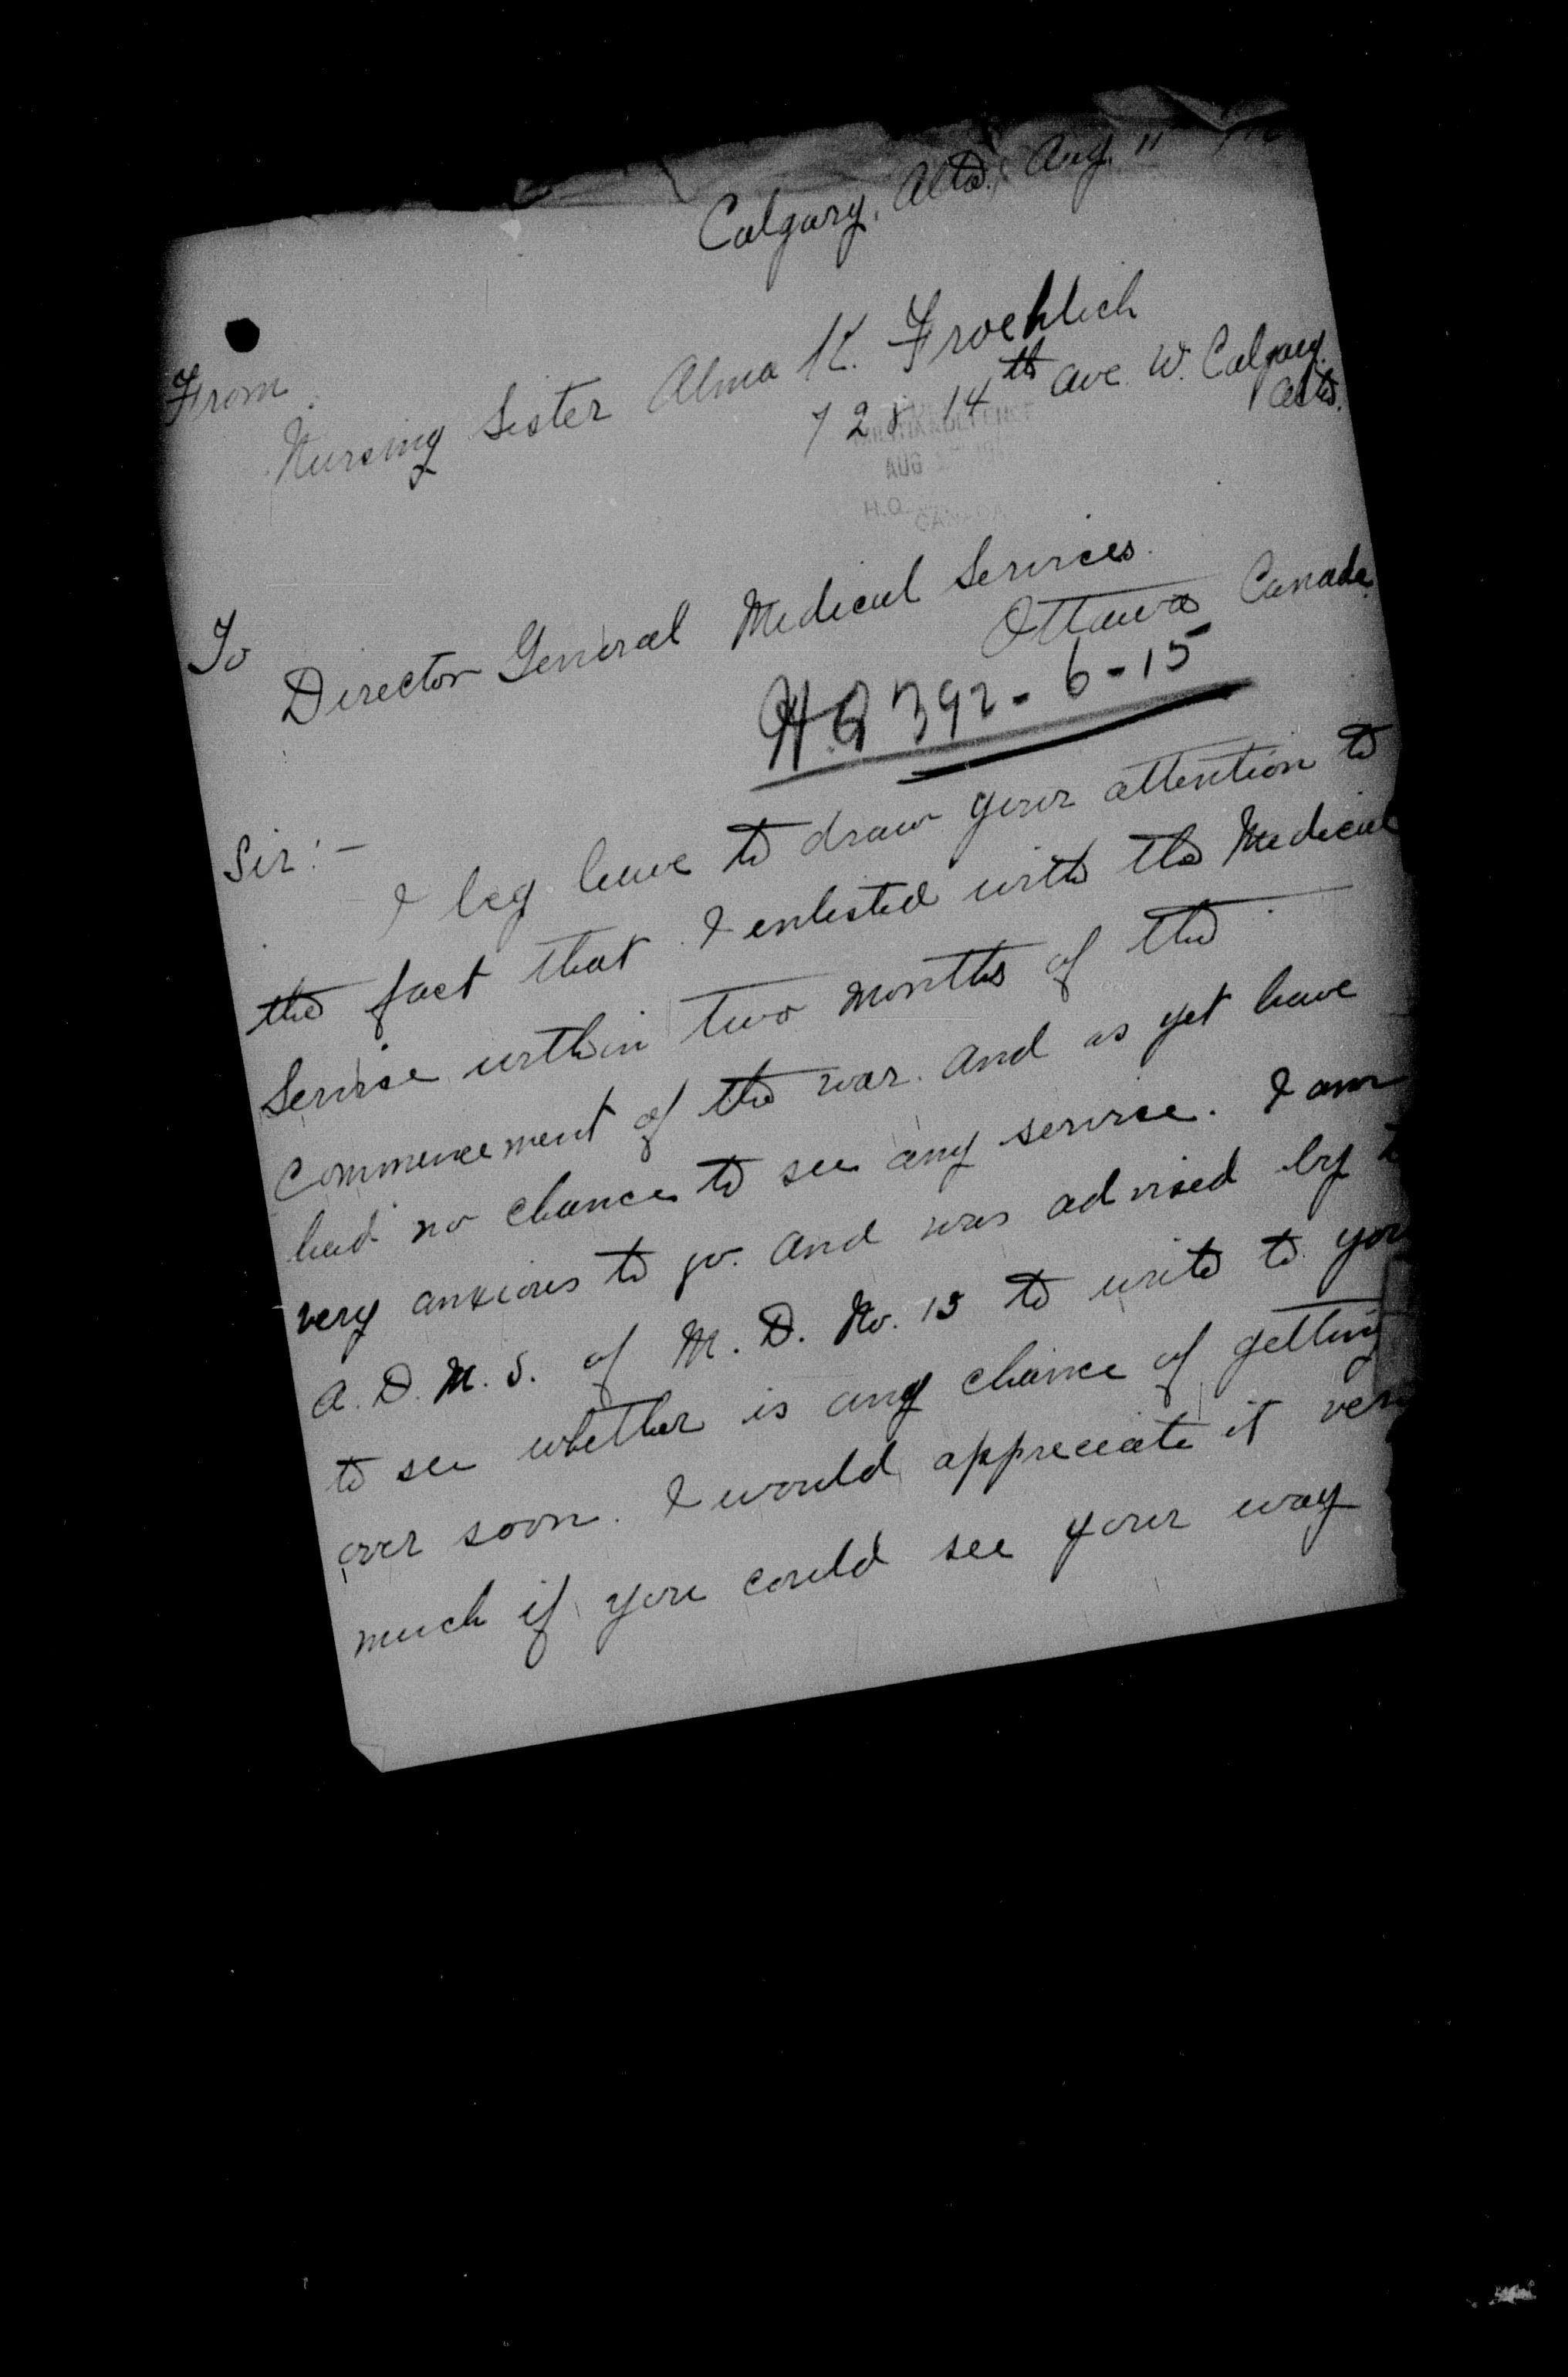 Calgary, Alta., Aug. 11
From
Nursing Sister Alma K. Froehlich
728 14th Ave. W. Calgary.
Alta.
MILITIA & DEFENCE
AUG
H.Q.
CANADA
To
Director General Medical Services.
Ottawa Canada.
H.Q 392-6-15
Sir:-
I beg leave to draw your attention to
the fact that I enlisted with the Medical
Service within two months of the
commencement of the war. and as yet have
had no chance to see any service. I am
very anxious to go. and was advised by
A. D. M. S. of M. D. No. 13 to write to you
to see whether is any chance of getting
over soon. I would appreciate it very
much if you could see your way